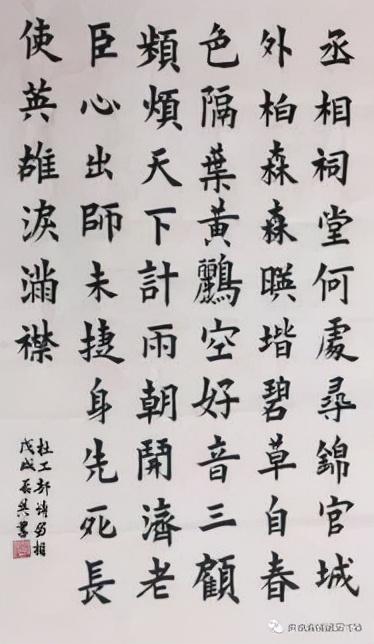 丞相祠堂何處尋錦官城
外柏森森暎堦碧草自春
色隔葉黃鸝空好音三顧
頻煩天下計雨朝開濟老
臣心出師未捷身先死長
使英雄淚滿襟
杜工部诗蜀相
戊戌書